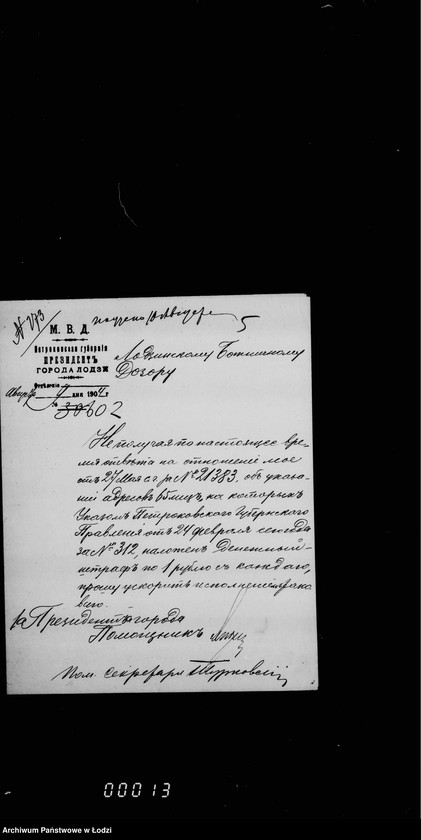 № 173
получено 10 Августа
5
М. В. Д.
Петроковская губернія
ПРЕЗИДЕНТЪ
ГОРОДА ЛОДЗИ
Отдѣленіе
Августа 9 дня 1904 г
№ 30602
Лодзинскому Божничному
Дозору
Неполучая по настоящее вре-
мя отвѣта на отношеніе мое
отъ 27 Мая с/г за № 21383, объ указа-
ніи адресовъ 65 лицъ, на которыхъ
Указомъ Петроковскаго Губернскаго
Правленія отъ 24 февраля сего года
за № 312, наложенъ денежный
штрафъ по 1 рублю съ каждаго,
прошу ускорить исполненіемъ
ваго.
за Президента города
Помощникъ
Пом. Секретаря Турковскій
00013
Archiwum Państwowe w Łodzi